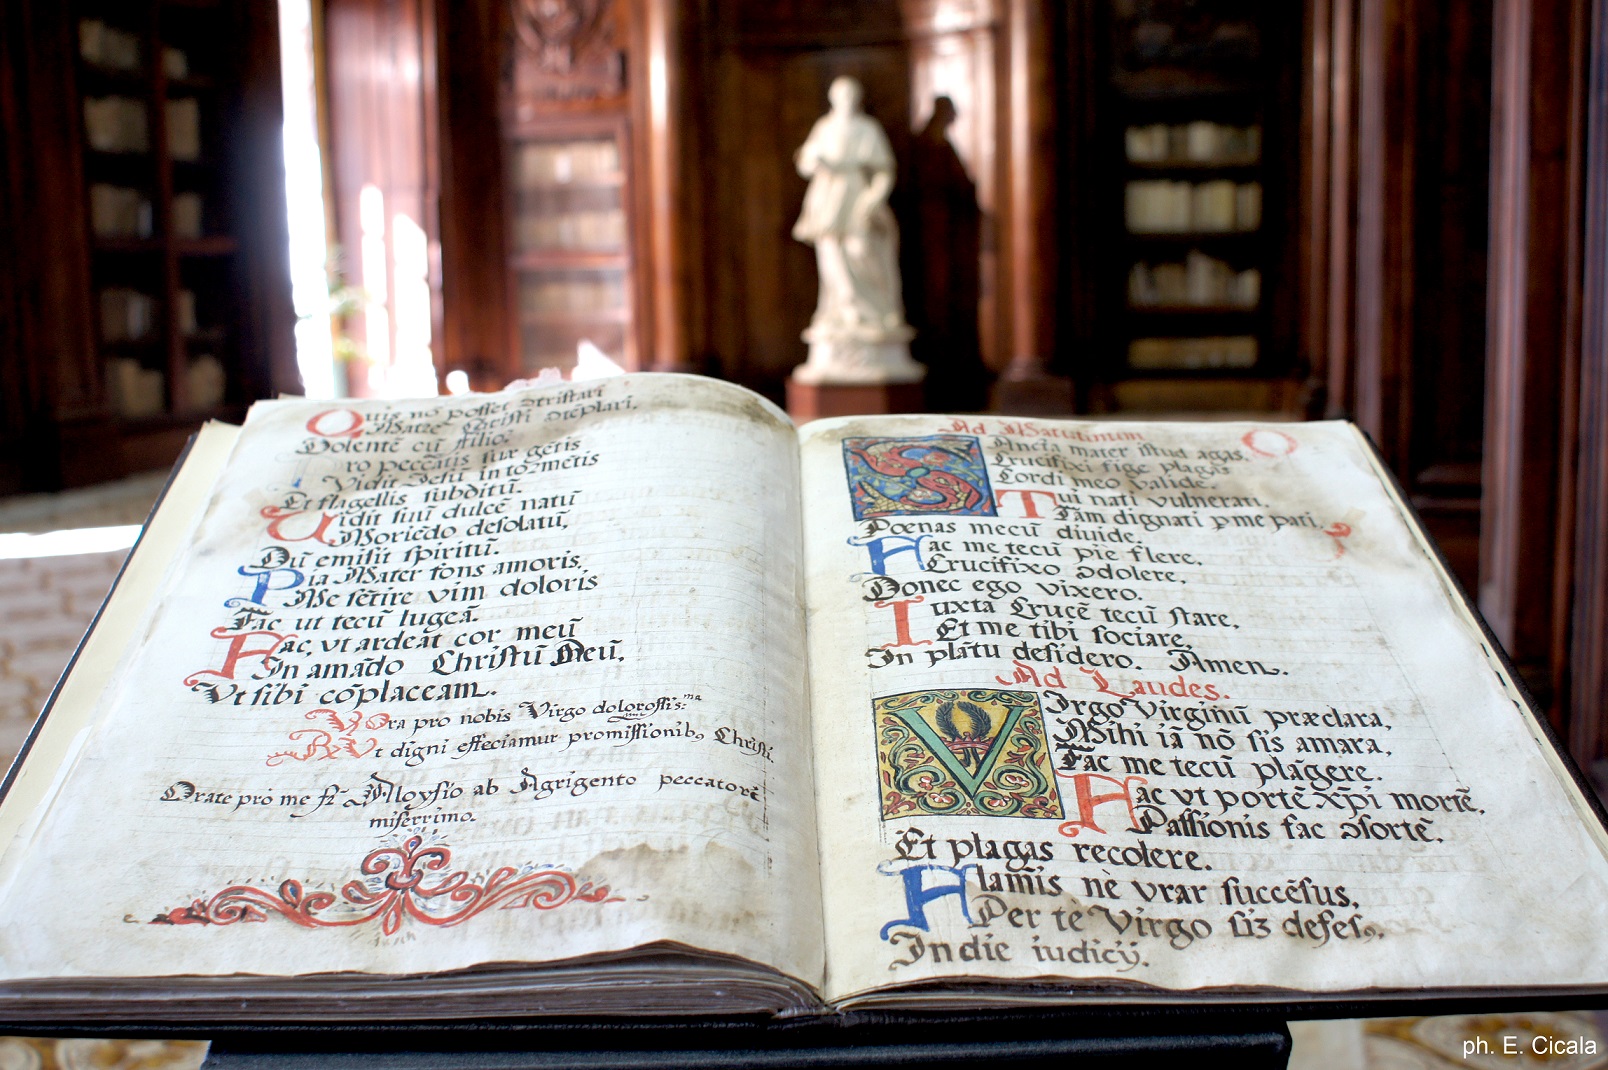 Quis nō posset ɔtristari
Matrē Christi ɔtēplari,
Dolentē cū filio?
ro peccatis suæ gētis
Vidit Iesū in tormētis
Et flagellis subditū.
Vidit suū dulcē natū
Moriēdo desolatū,
Dū emisit spiritū.
Pia Mater fons amoris,
Me sētire vim doloris
Fac ut tecū lugeā.
Fac, vt ardeat cor meū
In amādo Christū Deū,
Vt sibi cōplaceam.
V Ora pro nobis Virgo dolorossis:ma
R Vt digni efficiamur promissionib9 Christi.
Orate pro me fr̄ Aloysio ab Agrigento peccatorē
miserrimo.
Ad Matutinum
Sancta mater istud agas,
Crucifixi fige plagas
Cordi meo valide.
Tui nati vulnerati,
Tām dignati p me pati,
Pœnas mecū diuide.
Fac me tecū pie flere,
Crucifixo ɔdolere,
Donec ego vixero.
Iuxta Crucē tecū stare,
Et me tibi sociare,
In plātu desidero. Amen.
Ad Laudes.
Virgo Virginū præclara,
Mihi iā nō sis amara,
Fac me tecū plāgere.
Fac vt portē xp̄i mortē,
Passionis fac ɔsortē,
Et plagas recolere.
Flamīs nè vrar succēsus,
Per tè Virgo si3 defēs9,
In die iudicij.
ph. E. Cicala